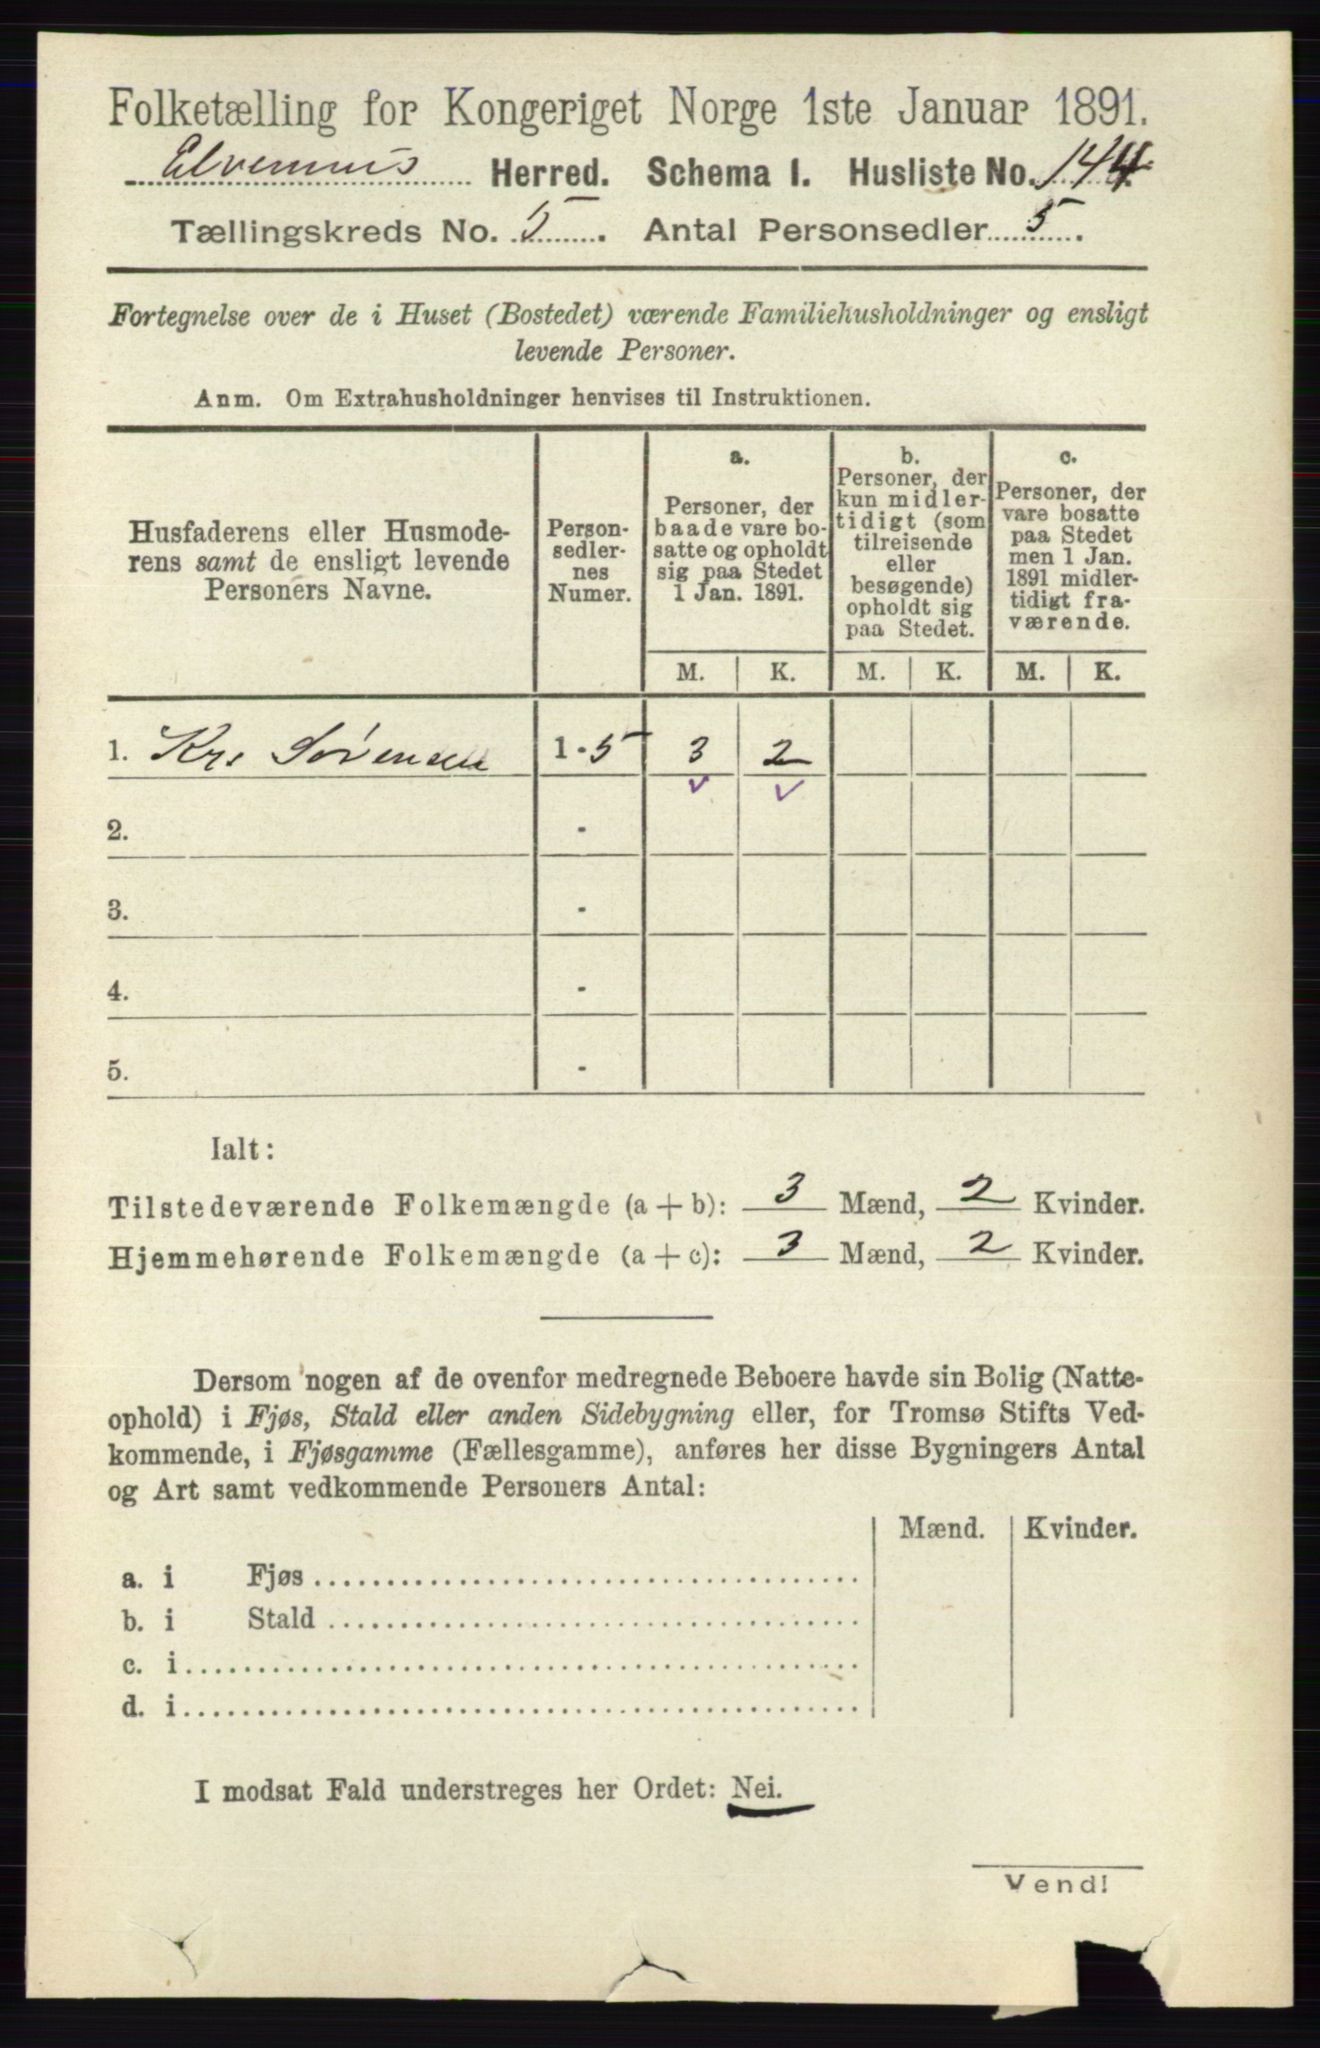 Folketælling for Kongeriget Norge 1ste Januar 1891.
Elverums Herred. Schema I. Husliste No. 144.
Tællingskreds No. 5. Antal Personsedler 5.
Fortegnelse over de i Huset (Bostedet) værende Familiehusholdninger og ensligt
levende Personer.
Anm. Om Extrahusholdninger henvises til Instruktionen.
Husfaderens eller Husmode-
rens samt de ensligt levende
Personers Navne.
Person-
sedler-
nes
Numer.
a.
Personer, der
baade vare bo-
satte og opholdt
sig paa Stedet
1 Jan. 1891.
b.
Personer, der
kun midler-
tidigt (som
tilreisende
eller
besøgende)
opholdt sig
paa Stedet.
c.
Personer, der
vare bosatte
paa Stedet
men 1 Jan.
1891 midler-
tidigt fra-
værende.
M. K. M. K. M. K.
1. Krs Sørensen 1-5 3 2
2. -
3. -
4. -
5. -
Ialt:
Tilstedeværende Folkemængde (a + b): 3 Mænd, 2 Kvinder.
Hjemmehørende Folkemængde (a + c): 3 Mænd, 2 Kvinder.
Dersom nogen af de ovenfor medregnede Beboere havde sin Bolig (Natte-
ophold) i Fjøs, Stald eller anden Sidebygning eller, for Tromsø Stifts Ved-
kommende, i Fjøsgamme (Fællesgamme), anføres her disse Bygningers Antal
og Art samt vedkommende Personers Antal:
Mænd. Kvinder.
a. i Fjøs
b. i Stald
c. i
d. i
I modsat Fald understreges her Ordet: Nei.
Vend!